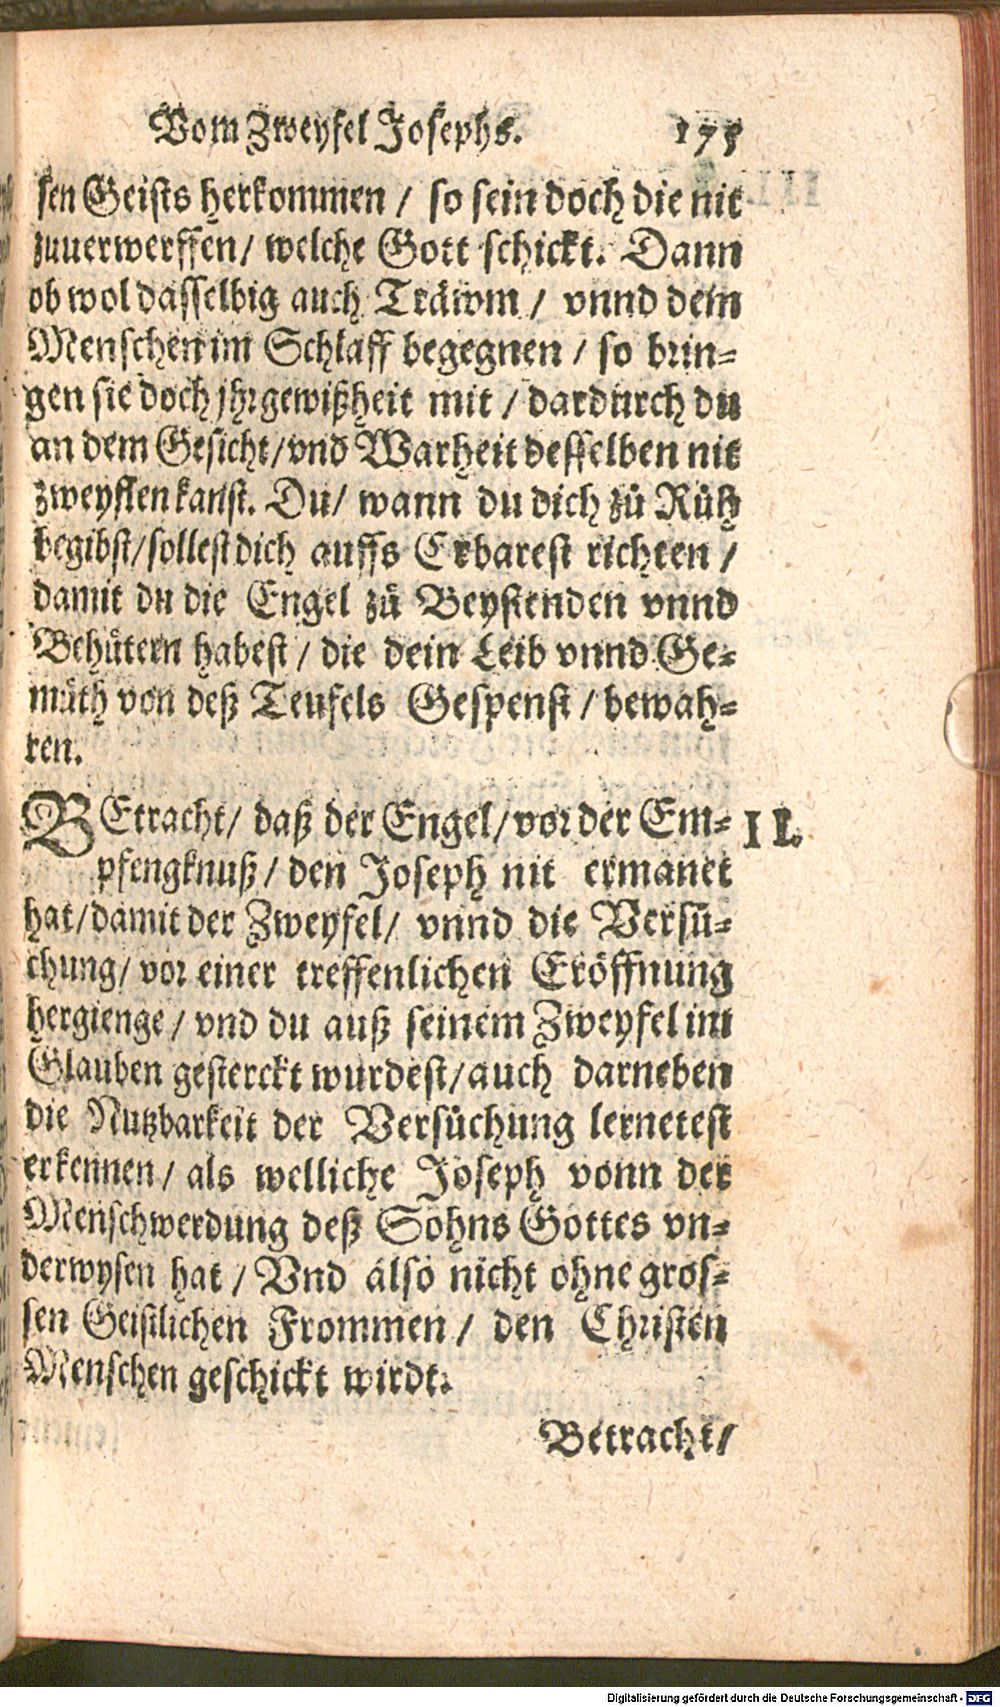 Vom Zweyfel Josephs. 175
sen Geists herkommen / so sein doch die nit
zuuerwerffen / welche Gott schickt. Dann
ob wol dasselbig auch Träwm / vnnd dem
Menschen im Schlaff begegnen / so brin-
gen sie doch jhr gewißheit mit / dardurch du
an dem Gesicht / vnd Warheit desselben nit
zweyflen kanst. Du / wann du dich zů Růh
begibst / sollest dich auffs Erbarest richten /
damit du die Engel zů Beystenden vnnd
Behütern habest / die dein Leib vnnd Ge-
müth von deß Teufels Gespenst / bewah-
ren.
BEtracht / daß der Engel / vor der Em- II.
pfengknuß / den Joseph nit ermanet
hat / damit der Zweyfel / vnnd die Versů-
chung / vor einer treffenlichen Eröffnung
hergienge / vnd du auß seinem Zweyfel im
Glauben gesterckt wurdest / auch darneben
die Nutzbarkeit der Versůchung lernetest
erkennen / als welliche Joseph vonn der
Menschwerdung deß Sohns Gottes vn-
derwysen hat / Vnd also nicht ohne gros-
sen Geistlichen Frommen / den Christen
Menschen geschickt wirdt.
Betracht /
Digitalisierung gefördert durch die Deutsche Forschungsgemeinschaft - DFG